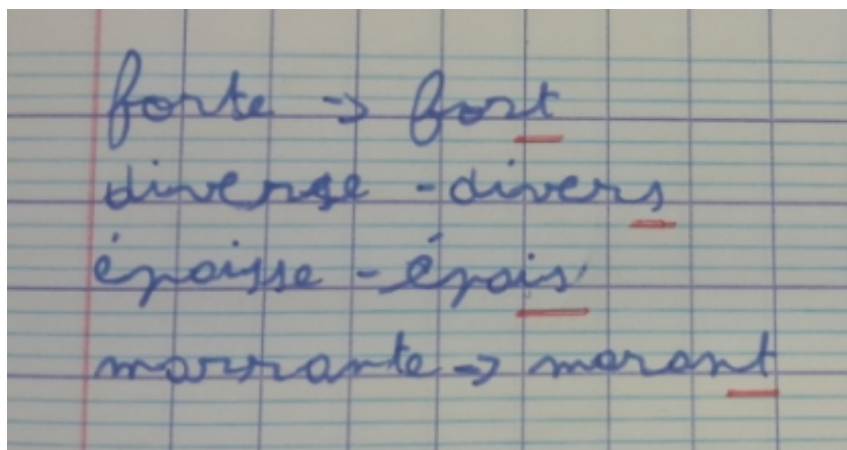 forte -> fort
diverse - divers
épaisse - épais
marrante -> marant